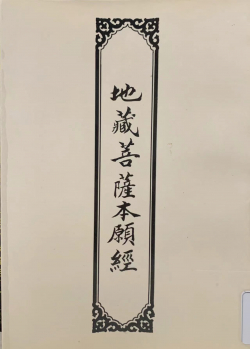 地藏菩薩本願經